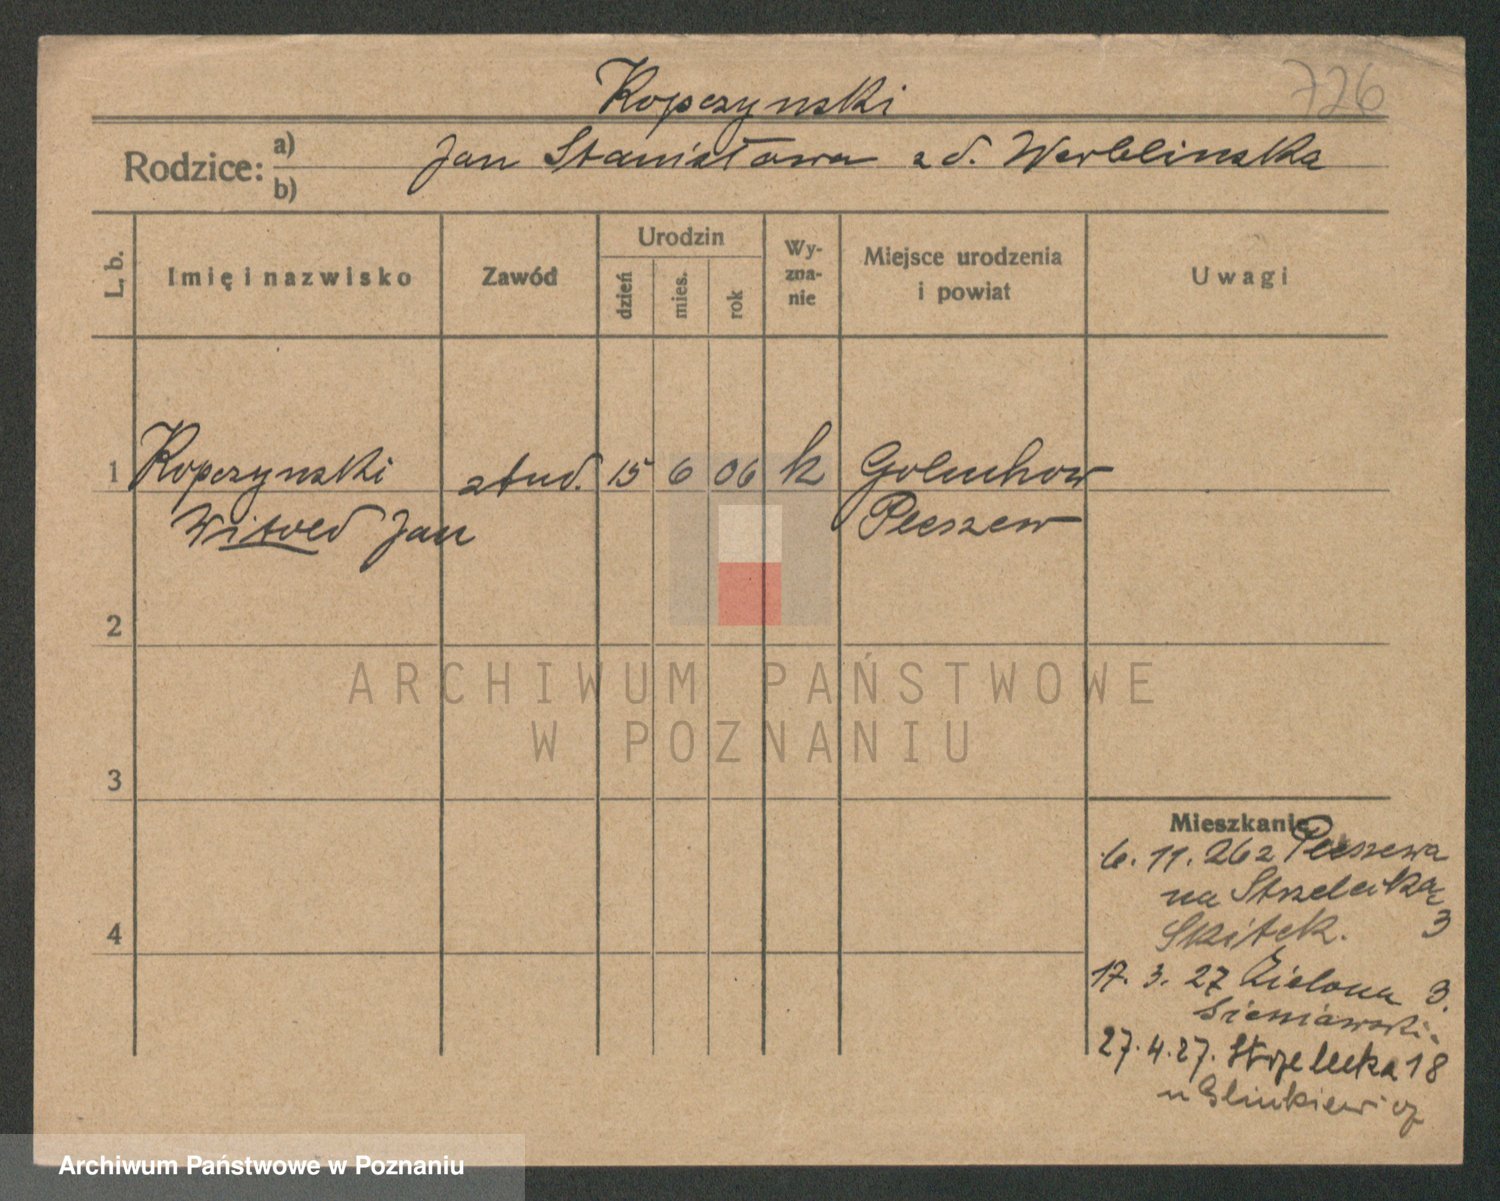 726
Kopczynski
Rodzice: a) Jan Stanisława z d. Werblinska
b)
L. b.
Imię i nazwisko
Zawód
Urodzin
dzień
mies.
rok
Wy-
zna-
nie
Miejsce urodzenia
i powiat
Uwagi
1 Kopczynski stud. 15 6 06 k Goluchow
Witold Jan Pleszew
2
ARCHIWUM PAŃSTWOWE
W POZNANIU
3
Mieszkanie
6. 11. 26 z Pleszewa
na Strzelecką
Skitek. 3
4
17. 3. 27 Zielona 3.
Sieniawski.
27. 4. 27. Strzelecka 18
u Glinkiewicz
Archiwum Państwowe w Poznaniu